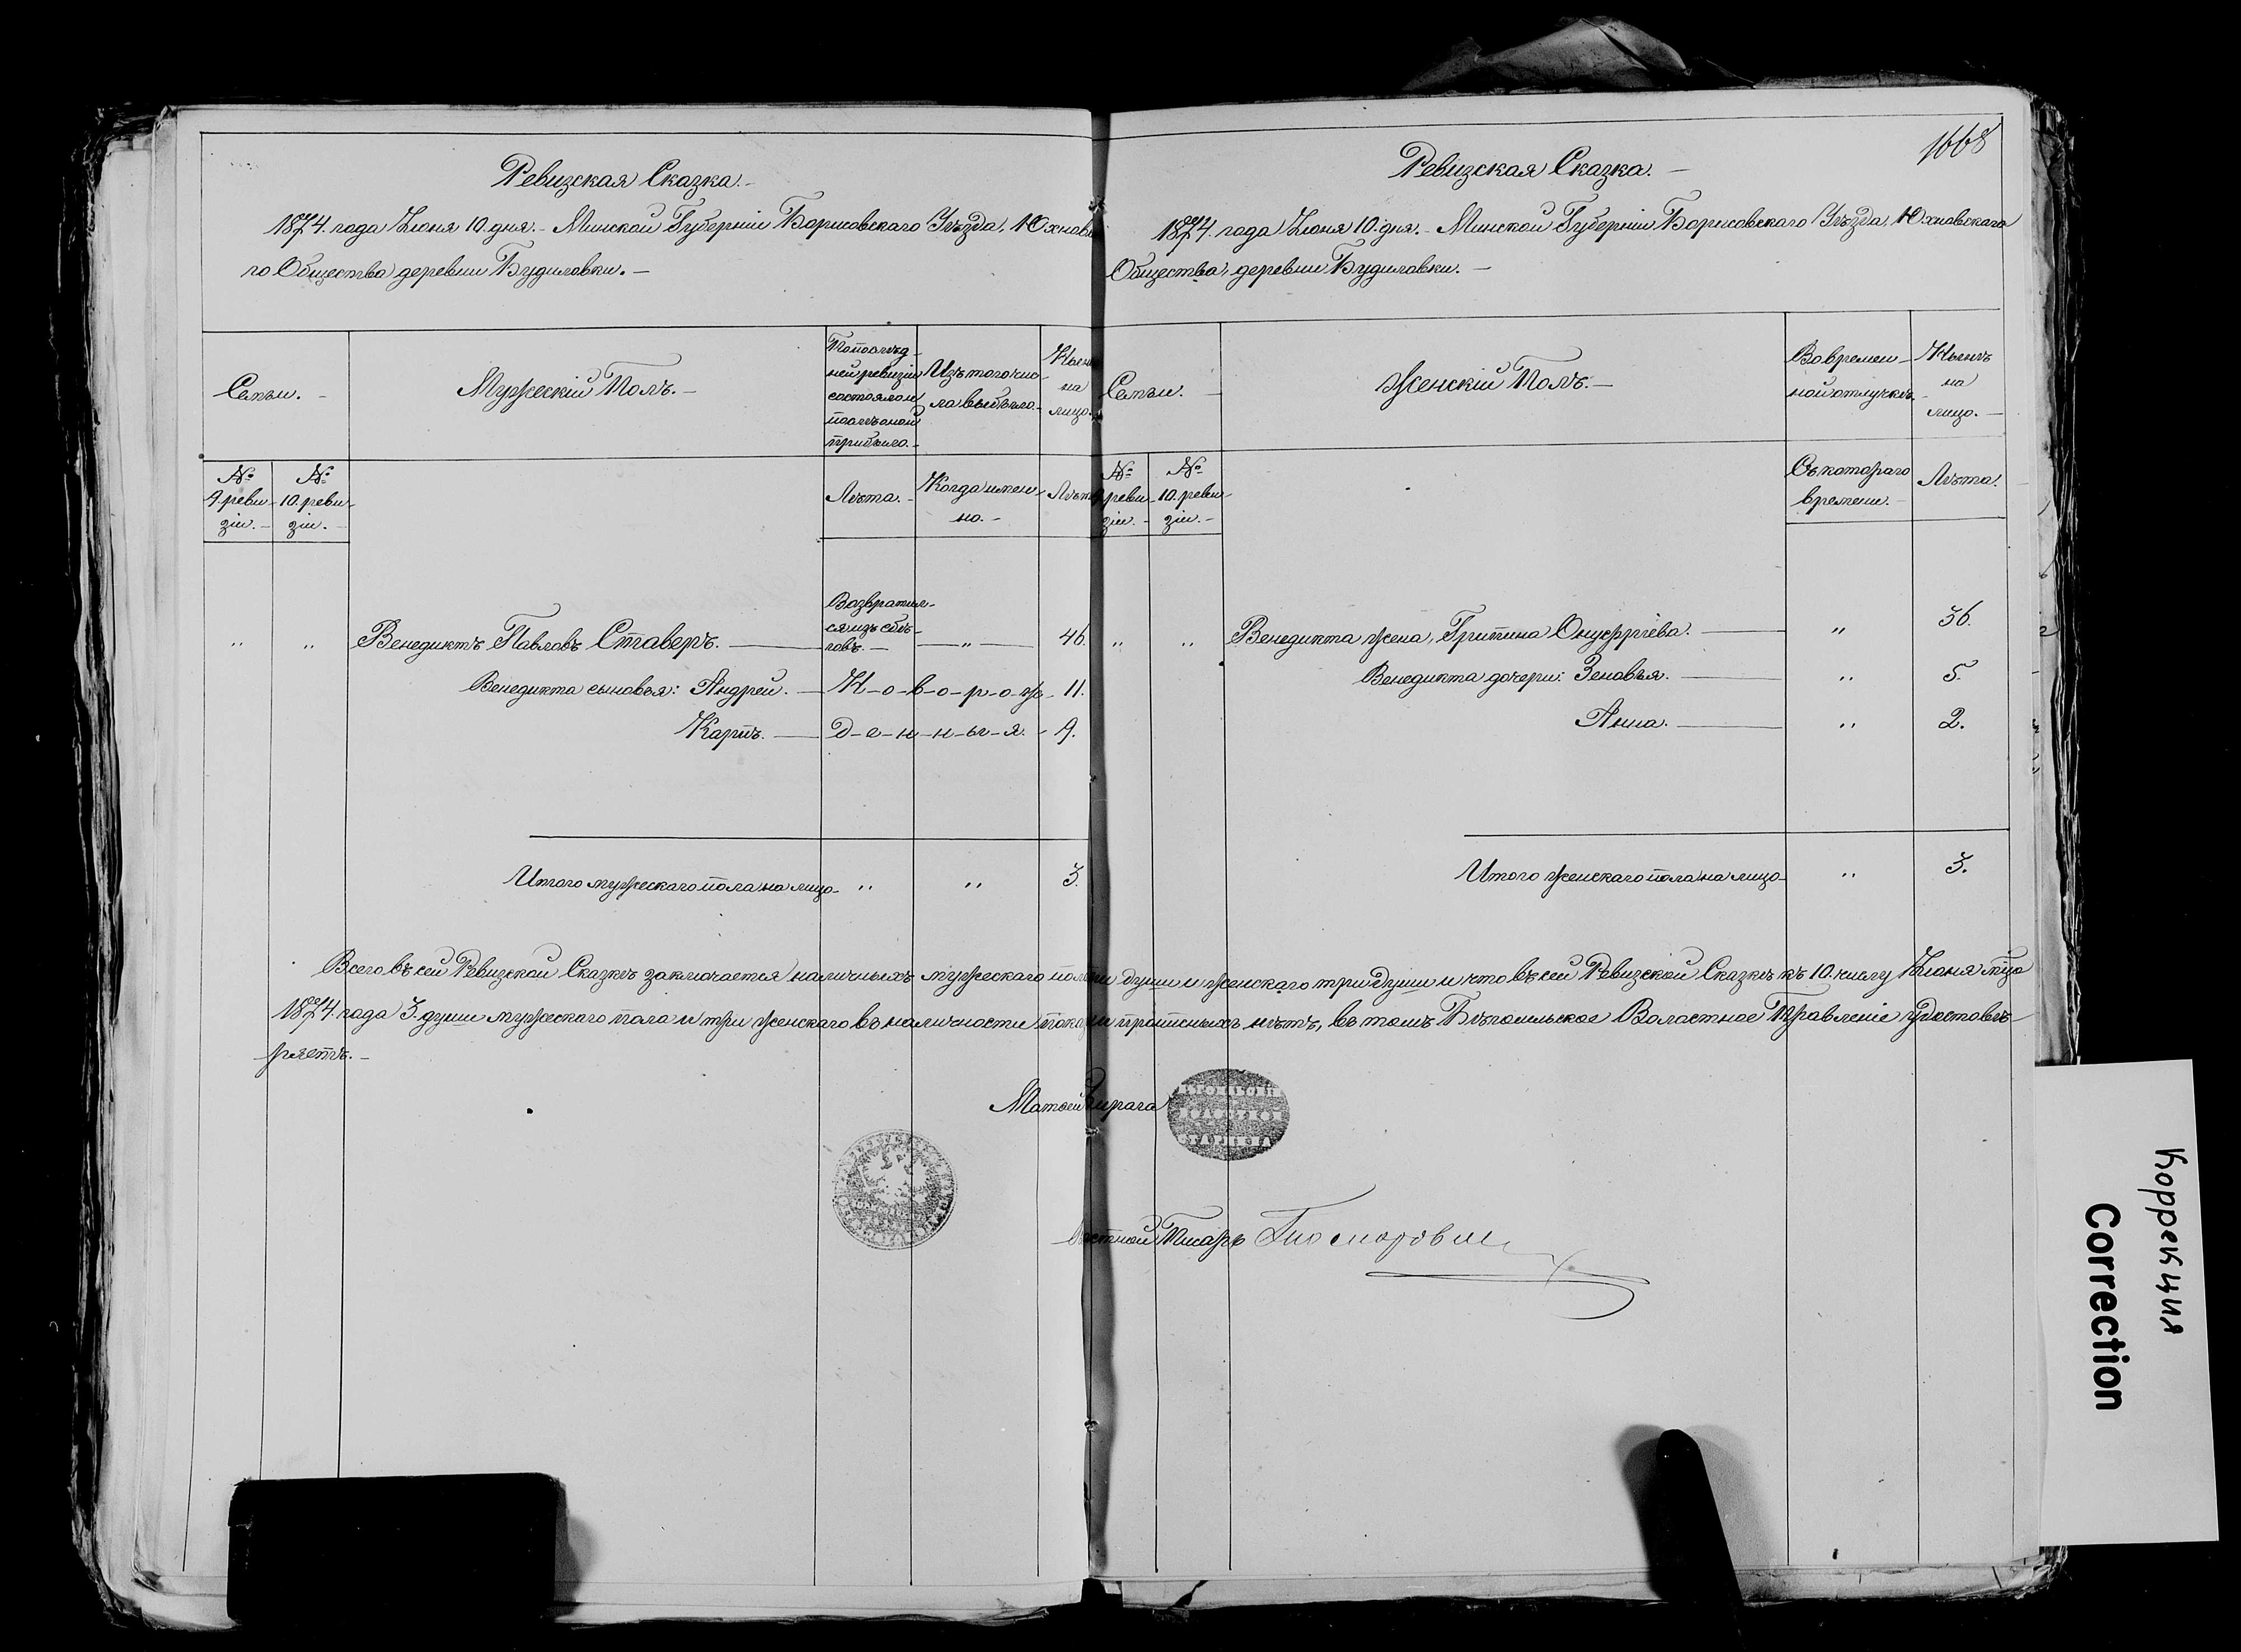 Ревизская Сказка. –
1874. года Июня 10. дня. – Минской Губерніи Борисовскаго Уѣзда, Юхновска
го Общества деревни Будиловки. –
Семьи. –
Мужескій Полъ. –
По послѣд-
ней ревизіи
состояло и
послѣ оной
прибыло. –
Изъ того чис-
ла выбыло. –
Нынѣ
на
лицо. –
№
9. реви-
зіи. –
№
10. реви-
зіи. –
Лѣта. –
Когда имен-
но. –
Лѣта
Возвратил-
ся изъ бѣ-
говъ. –
„ „ Венедиктъ Павловъ Ставеръ. — — „ — 46.
Венедикта сыновья: Андрей. — Н-о-в-о-р-о-ж- 11.
Карпъ. — д-е-н-н-ы-я. - 9.
Итого мужескаго пола на лицо – „ „ 3.
1668
Ревизская Сказка. –
1874. года Июня 10. дня. – Минской Губерніи Борисовскаго Уѣзда, Юхновскаго
Общества, деревни Будиловки. –
Семьи. –
Женскій Полъ. –
Во времен-
ной отлучкѣ. –
Нынѣ
на
лицо. –
№
9. реви-
зіи. –
№
10. реви-
зіи. –
Съ котораго
времени. –
Лѣта.
„ „ Венедикта жена, Грипина Онуфріева. — „ 36.
Венедикта дочери: Зеновья. — „ 5.
Анна. — „ 2.
Итого женскаго пола на лицо – „ 3.
Всего въ сей Ревизской Сказкѣ заключается наличныхъ мужескаго пола три души и женскаго три души и что въ сей Ревизской Сказкѣ къ 10. числу Июня м̃ца
1874. года 3. души мужескаго пола и три женскаго въ наличности показаны прописныхъ нѣтъ, въ томъ Бѣгомльское Волостное Правленіе удостовѣ-
ряетъ. –
Матвей
БѢГОМЛЬСКІЙ
ВОЛОСТНОЙ
СТАРШИНА
Волостной Писарь
Коррекция
Correction